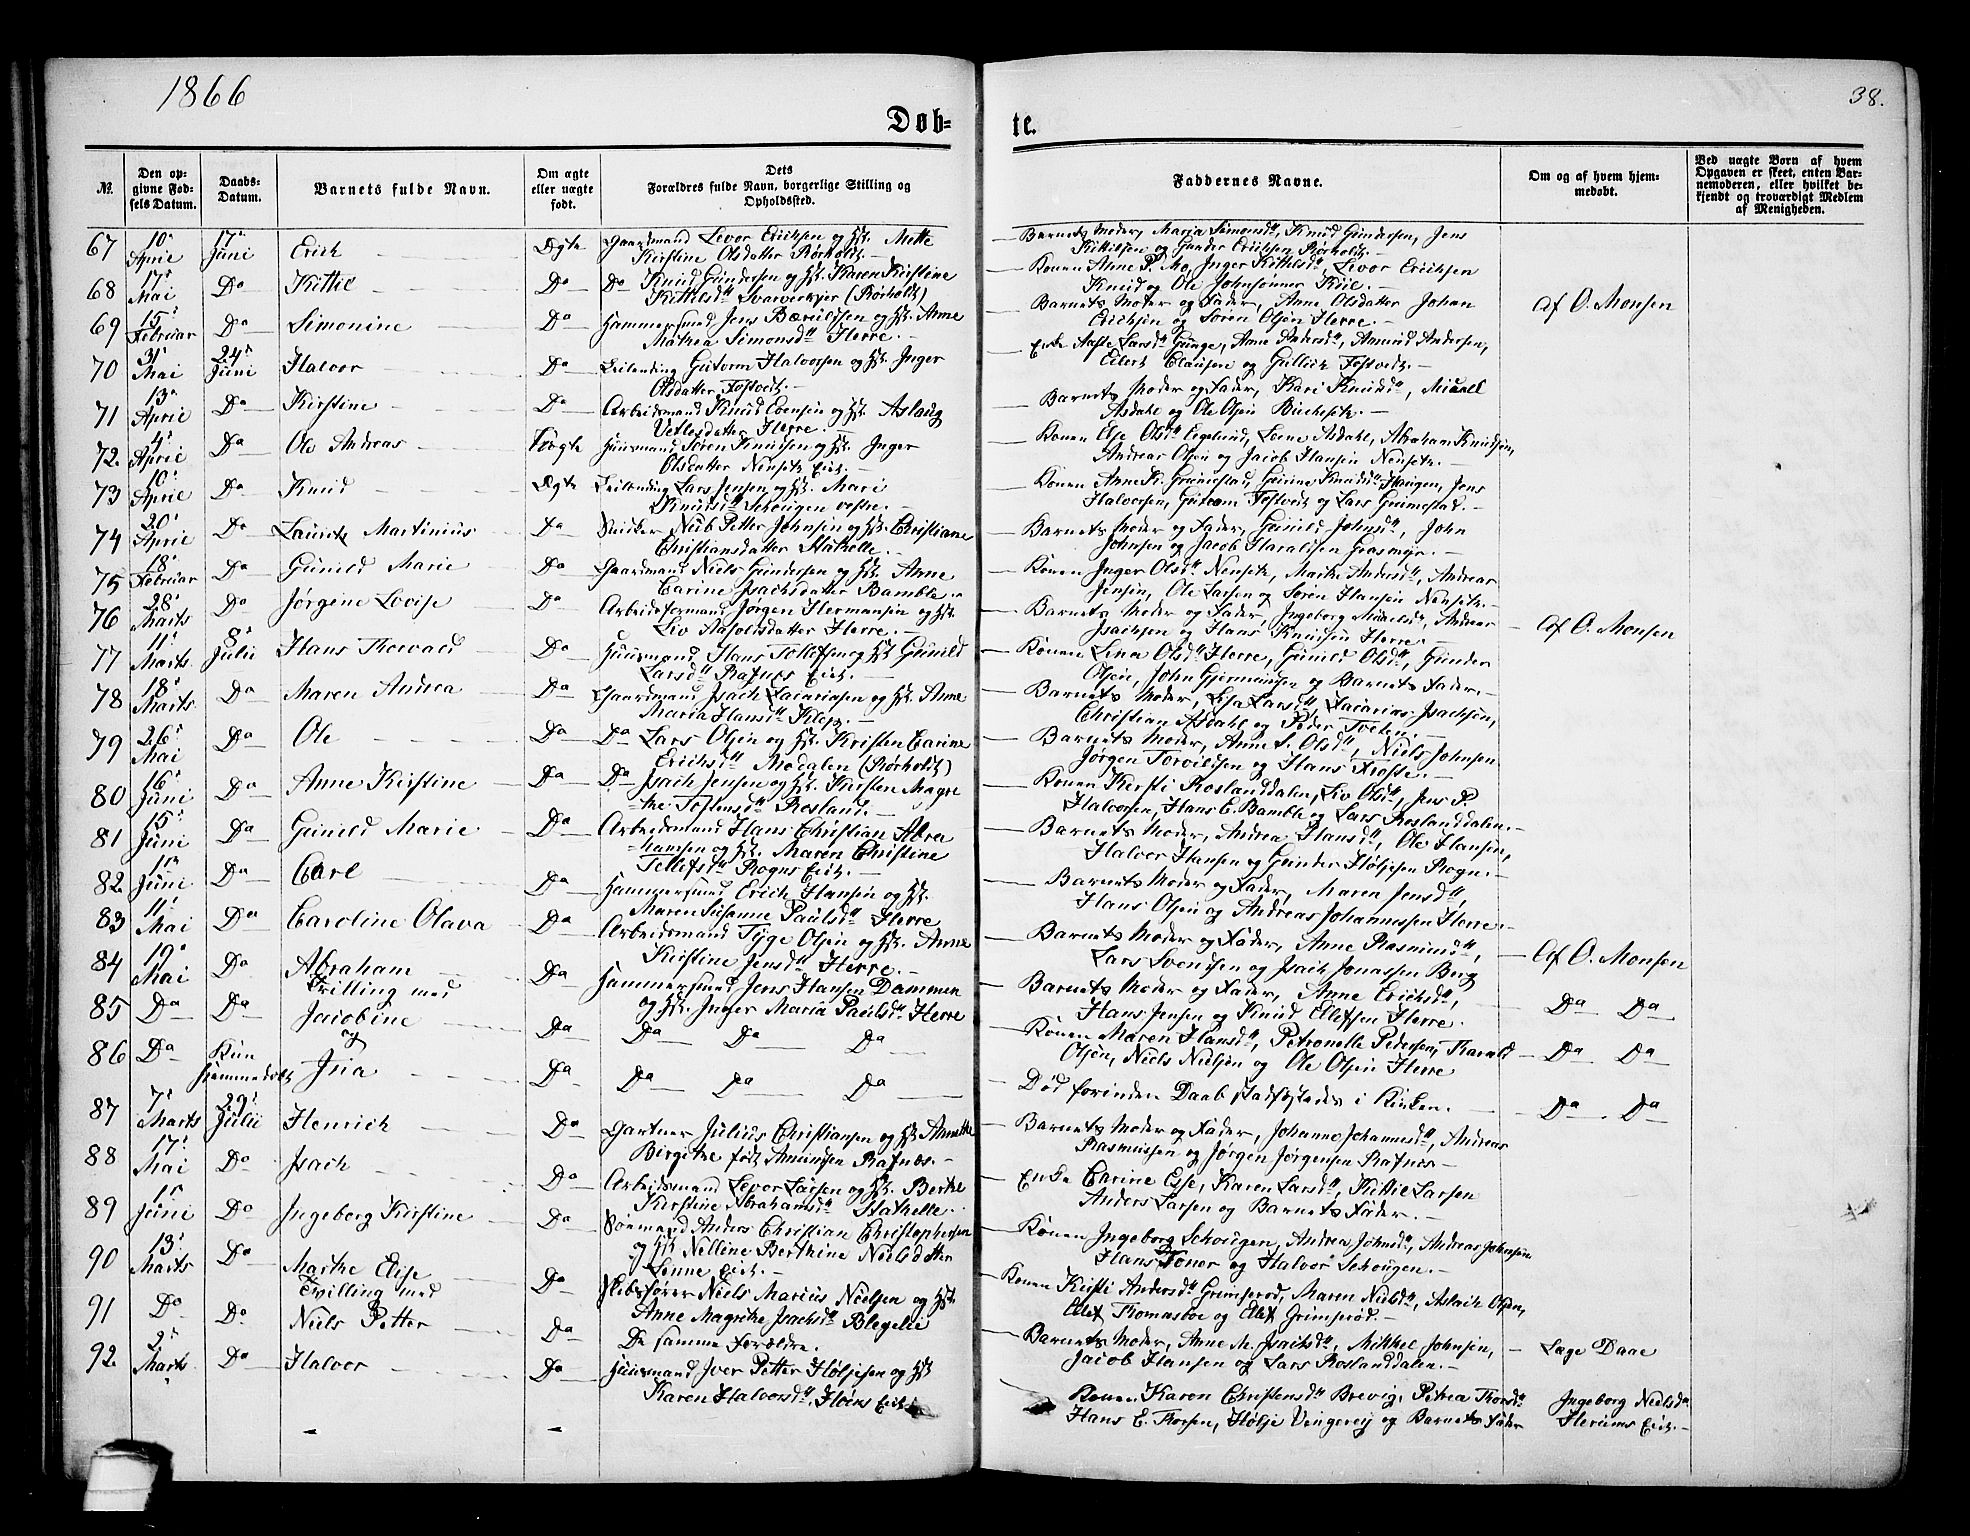 1866
38.
Døb-
te.
No.
Den op-
givne Fød-
sels Datum.
Daabs-
Datum.
Barnets fulde Navn.
Om ægte
eller uægte
født.
Dets
Forældres fulde Navn, borgerlige Stilling og
Opholdssted.
Faddernes Navne.
Om og af hvem hjem-
medøbt.
Ved uægte Børn af hvem
Opgaven er skeet, enten Bar-
nemoderen, eller hvilket be-
kjendt og troværdigt Medlem
af Menigheden.
67 10 April 17 Juni Erich Ægte Gaardmand Levor Erichsen og H. Mette
Kirstine Olsdatter Rørholdt.
Barnets Moder, Maria Simonsd, Knud Gundersen, Jens
Kittilsen og Gunder Erichsen Rørholdt.
68 17 Mai Da Kittil Da Da Knud Gundersen og H. Karen Kirstine
Kittilsd Svarverkjær (Rørholdt)
Konen Anne P. Mo, Inger Kittilsd, Levor Erichsen
Knud og Ole Johnsønner Kiil.
69 15 Februar Da Simonine Da Hammersmed Jens Bærulfsen og H. Anne
Mathea Simonsd Herre.
Barnets Moder og Fader, Anne Olsdatter Johan
Erichsen og Søren Olsen Herre.
af O. Monsen
70 31 Mai 24 Juni Halvor Da Leilending Gutorm Halvorsen og H. Inger
Olsdatter Tostvedt.
Enke Aaste Larsd Gunge, Anne Andersd, Amund Andersen,
Eilert Clausen og Gullich Tostvedt.
71 13 April Da Kirstine Da Arbeidsmand Knud Evensen og H. Aslaug
Vetlesdatter Herre.
Barnets Moder og Fader, Kari Knudsd, Micael
Asdahl og Ole Olsen
72. 4 April Da Ole Andreas Huusmand Søren Knudsen og H. Inger
Olsdatter Nensetr Eid.
Konen Else Olsd Eegelund, Lene Asdahl, Abraham Knudsen,
Andreas Olsen og Jacob Hansen Nensetr.
73 10 April Da Knud Ægte Leilending Lars Jensen og H. Mari
Knudsd Schougen vestre.
Konen Anne K. Grimestad, Gurine Knudsd Haugen, Jens
Halvorsen, Gutorm Tostvedt og Lars Grimestad.
74 20 April Da Lauritz Martinius Da Snidker Niels Petter Johnsen og H. Christiane
Christiansdatter Stathelle.
Barnets Moder og Fader, Gunild Johnsd, John
Johnsen og Jacob Haraldsen Grasmyr.
75 18 Februar Da Gunild Marie Da Gaardmand Niels Gundersen og H. Anne
Carine Isachsdatter Bamble.
Konen Inger Olsd Nensetr, Marthe Andersd, Andreas
Jensen, Ole Larsen og Søren Hansen Nensetr.
76 28 Marts Da Jørgine Lovise Da Arbeidsformand Jørgen Hermansen og H.
Liv Aasoldsdatter Herre.
Barnets Moder og Fader, Ingeborg Micaelsd, Andreas
Isachsen og Hans Knudsen Herre.
Af O. Monsen
77 11 Marts 8 Julii Hans Thorvald Da Huusmand Hans Tollefsen og H Gunild
Larsd Rafnæs Eid.
Konen Lina Olsd Herre, Gunild Olsd, Gunder
Olsen, John Gjermundsen og Barnets Fader.
78 18 Marts Da Maren Andrea Da Gaardmand Isach Zacariasen og H. Anne
Maria Hansd Klep.
Barnets Moder, Lisa Larsd, Zacarias Isachsen,
Christian Asdahl og Peder Tveten.
79 26 Mai Da Ole Da Da Lars Olsen og H. Kristen Carine
Erichsd Modalen (Rørholdt)
Barnets Moder, Anne S. Olsd, Niels Johnsen
Jørgen Torvildsen og Hans Froste.
80 16 Juni Da Anne Kirstine Da Da Isach Jensen og H. Kirsten Magre
the Tostensd Rosland.
Konen Kersti Roslanddalen, Liv Olsd, Jens P.
Halvorsen, Hans E. Bamble og Lars Roslanddalen.
81 15 Juni Da Gunild Marie Da Arbeidsmand Hans Christian Abra
hamsen og H. Maren Christine
Tellefsd Rogns Eid.
Barnets Moder, Andrea Hansd, Ole Hansen,
Halvor Hansen og Gunder Høljesen Rogn.
82. 1 Juni Da Carl Da Hammersmed Erich Hansen og H.
Maren Susanne Paulsd Herre
Barnets Moder og Fader, Maren Jensd,
Hans Olsen og Andreas Johannessen Herre.
83 11 Mai Da Caroline Olava Da Arbeidsmand Tyge Olsen og H. Anne
Kirstine Jensd Herre.
Barnets Moder og Fader, Anne Rasmusd,
Lars Svendsen og Isach Jonassen Berg
Af O. Monsen
84 19 Mai Da Abraham
Trilling med
Da Hammersmed Jens Hansen Dammen
og H. Inger Maria Paulsd Herre
Barnets Moder og Fader, Anne Erichsd,
Hans Jensen og Knud Ellefsen Herre.
Da Da
85 Da Da Jacobine
og
Da Da Da Da
Konen Maren Hansd, Petronelle Pedersen, Harald
Olsen, Niels Nielsen og Ole Olsen Herre
Da Da
86 Da Kun
hjemmedøbt Isia Da Da Da Da
Død forinden Daab stadfæstedes i Kirken.
Da Da
87 7 Marts 29 Julii Henrich Da Gartner Julius Christiansen og H Annette
Birgithe født Amundsen Rafnæs.
Barnets Moder og Fader, Johanne Johannesd, Andreas
Rasmussen og Jørgen Jørgensen Rafnæs
88 17 Mai Da Isach Da Arbeidsmand Levor Larsen og H. Berthe
Kirstine Abrahamsd Stathelle.
Enke Carine Esse, Karen Larsd, Kittil Larsen
Anders Larsen og Barnets Fader.
89 1 Juni Da Ingeborg Kirstine Da Sømand Anders Christian Christophersen
og H Nelline Berthine Nielsdatter
Lønne Eid.
Konen Ingeborg Schougen, Andrea Johnsd, Andreas Johnsen
Hans Toner og Halvor Schougen.
90 13 Marts Da Marthe Elise
Tvilling med
Da Skibsfører Niels Marius Nielsen og H.
Anne Magrethe Isachsd Blegelie
Konen Kirsti Andersd Grimsrød, Maren Nielsd, Aslach Olsen,
Ellef Thomasboe og Ellef Grimsrød.
91 Da Da Niels Petter Da De samme Forældre.
Barnets Moder, Anne M. Isachsd, Mikkel Johnsen,
Jacob Hansen og Lars Roslanddalen.
Læge Daae
92. 2 Marts Da Halvor Da Huusmand Iver Petter Høljesen og H
Karen Halvorsd, Høiens Eid.
Konen Karen Christensd Brevig, Petrea Thorsd
Hans E. Thorsen, Hølje Vingereij og Barnets Fader
Ingeborg Nielsd
Herums Eid.